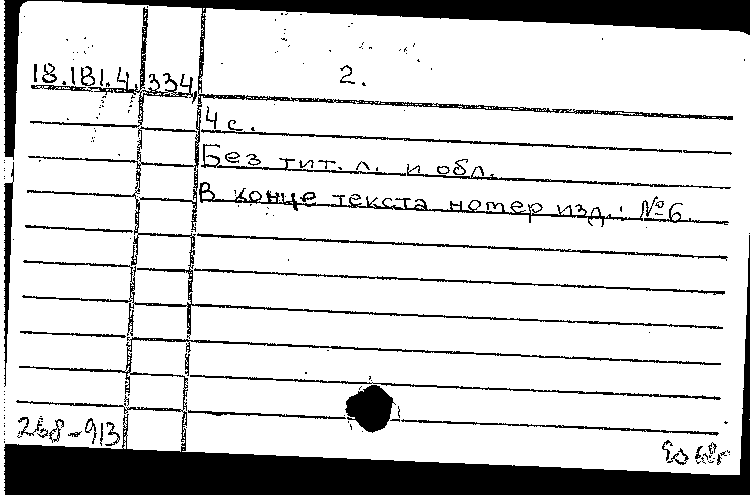 18.181.4.334 2.
4 с.
Без тит. л. и обл.
В конце текста номер изд.: №6.
268-913